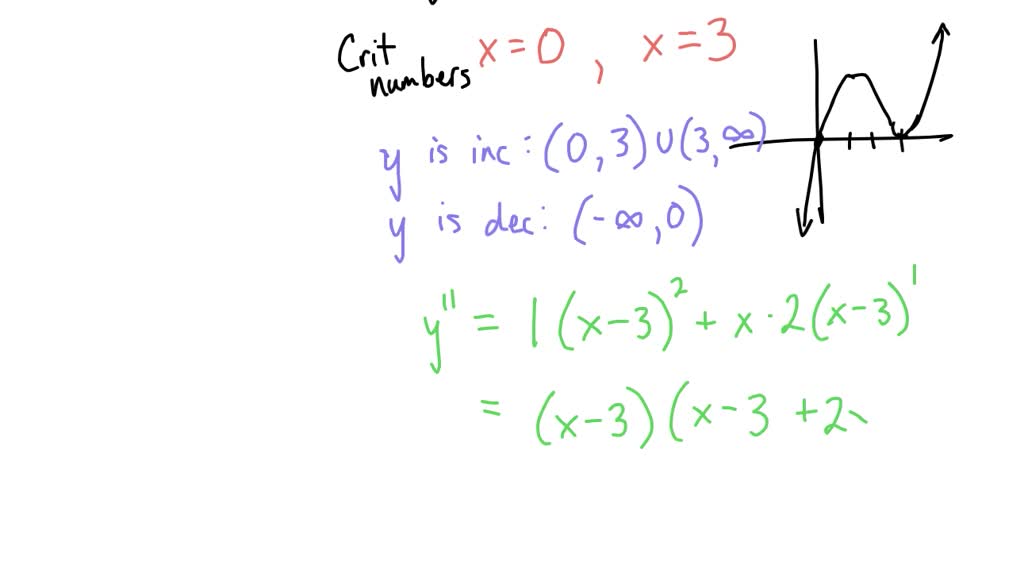 Crit numbers x = 0 , x = 3
y is inc : (0, 3) ∪ (3, ∞)
y is dec: (-∞, 0)
y'' = 1(x-3)² + x · 2(x-3)¹
= (x-3)(x-3 +2